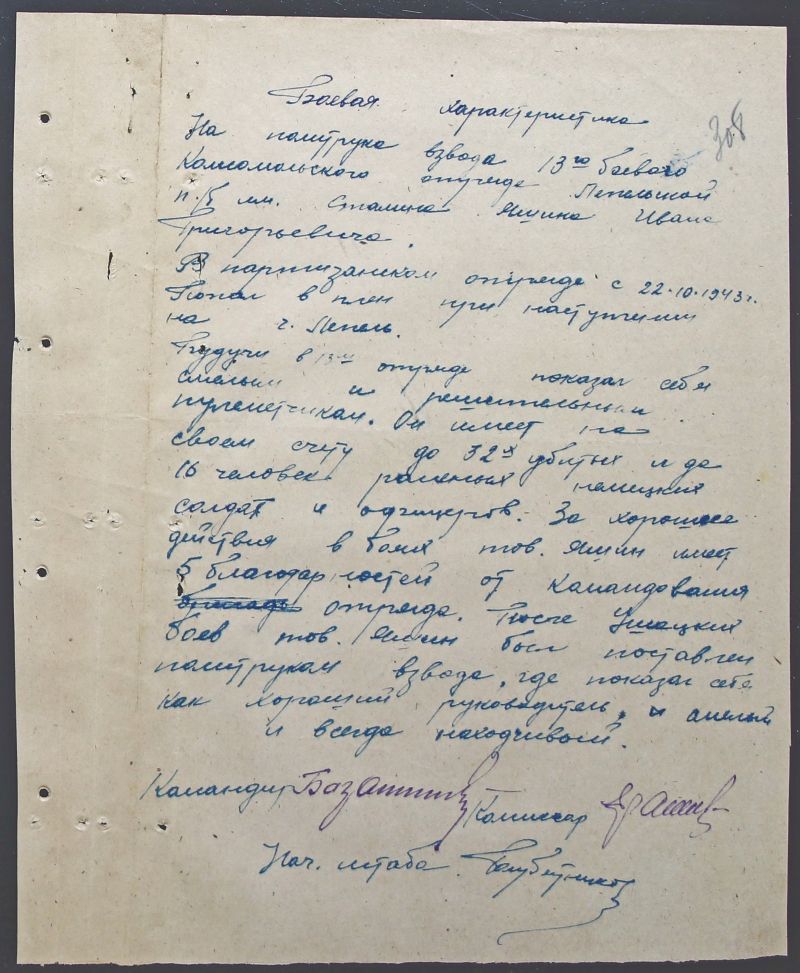 Боевая характеристика
308
На политрука взвода 13го боевого
Комсомольского отряда Лепельской
п.б им. Сталина Яшина Ивана
Григорьевича.
В партизанском отряде с 22.10.1943г.
Попал в плен при наступлении
на г. Лепель.
Будучи в 13м отряде показал себя
смелым и решительным
пулеметчиком. Он имеет на
своем счету до 32х убитых и до
16 человек раненых немецких
солдат и офицеров. За хорошие
действия в боях тов. Яшин имеет
5 благодарностей от командования
отряда. После Ушацких
боев тов. Яшин был поставлен
политруком взвода, где показал себя
как хороший руководитель, и смелый
и всегда находчивый.
Командир Комиссар
Нач. штаба